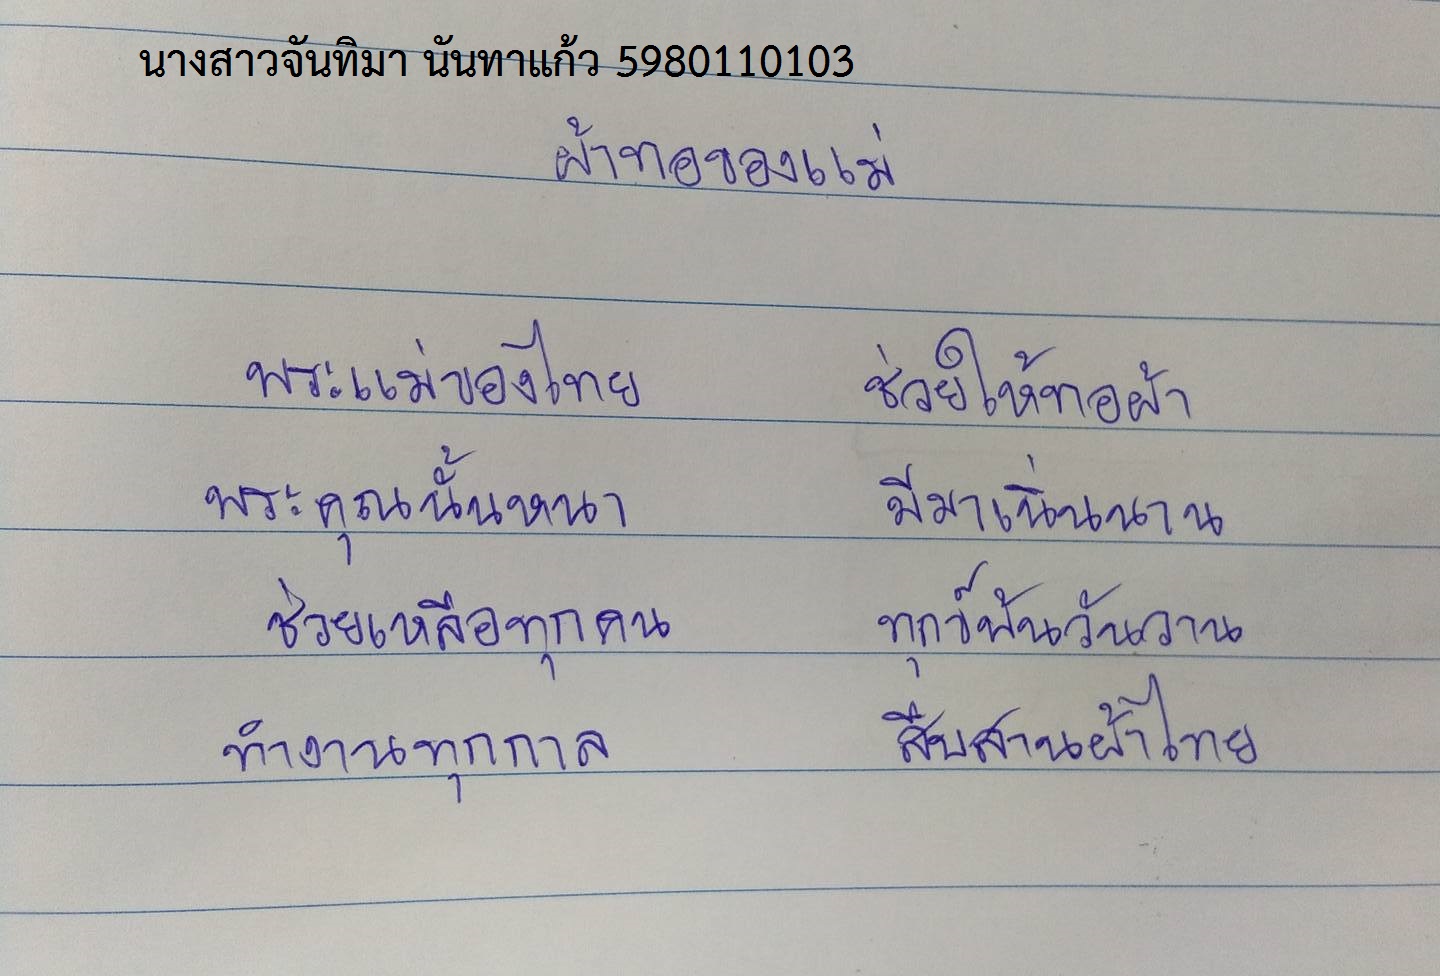 นางสาวจันทิมา นันทาแก้ว 5980110103
ผ้าทอของแม่
พระแม่ของไทย ช่วยให้ทอผ้า
พระคุณนั้นหนา มีมาเนิ่นนาน
ช่วยเหลือทุกคน ทุกข์พ้นวันวาน
ทำงานทุกกาล สืบสานผ้าไทย